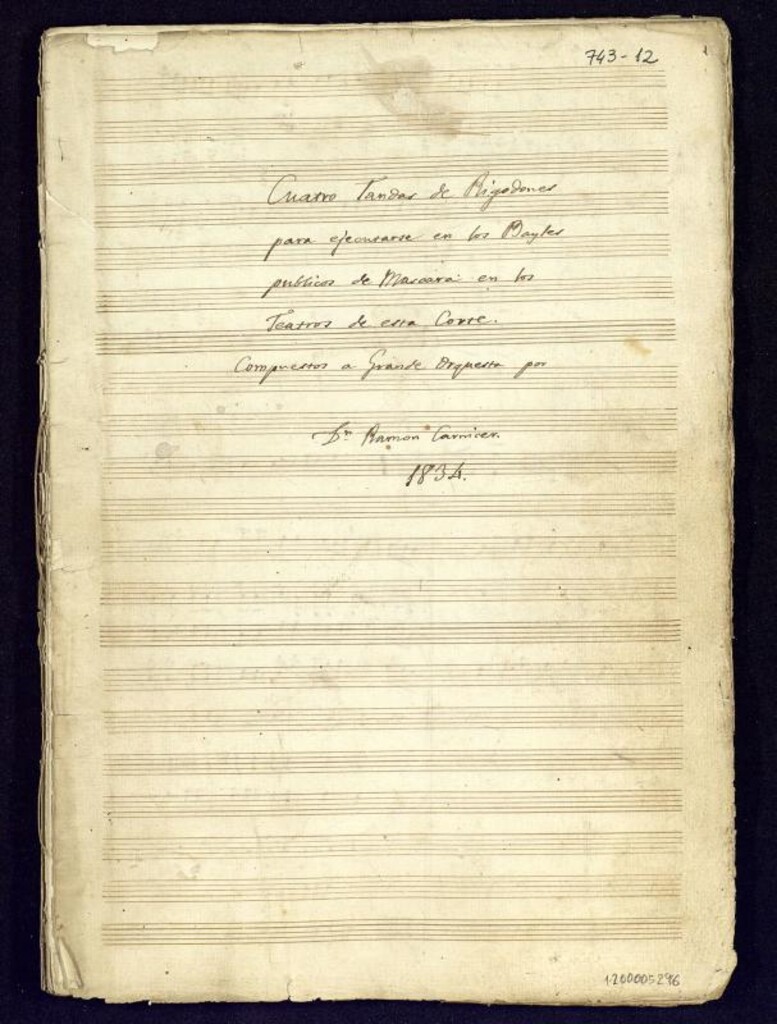 743-12
Cuatro Tandas de Rigodones
para ejecutarse en los Bayles
publicos de Mascara en los
Teatros de esta Corte.
Compuestos a Grande Orquesta por
Dn Ramon Carnicer.
1834.
1200005296